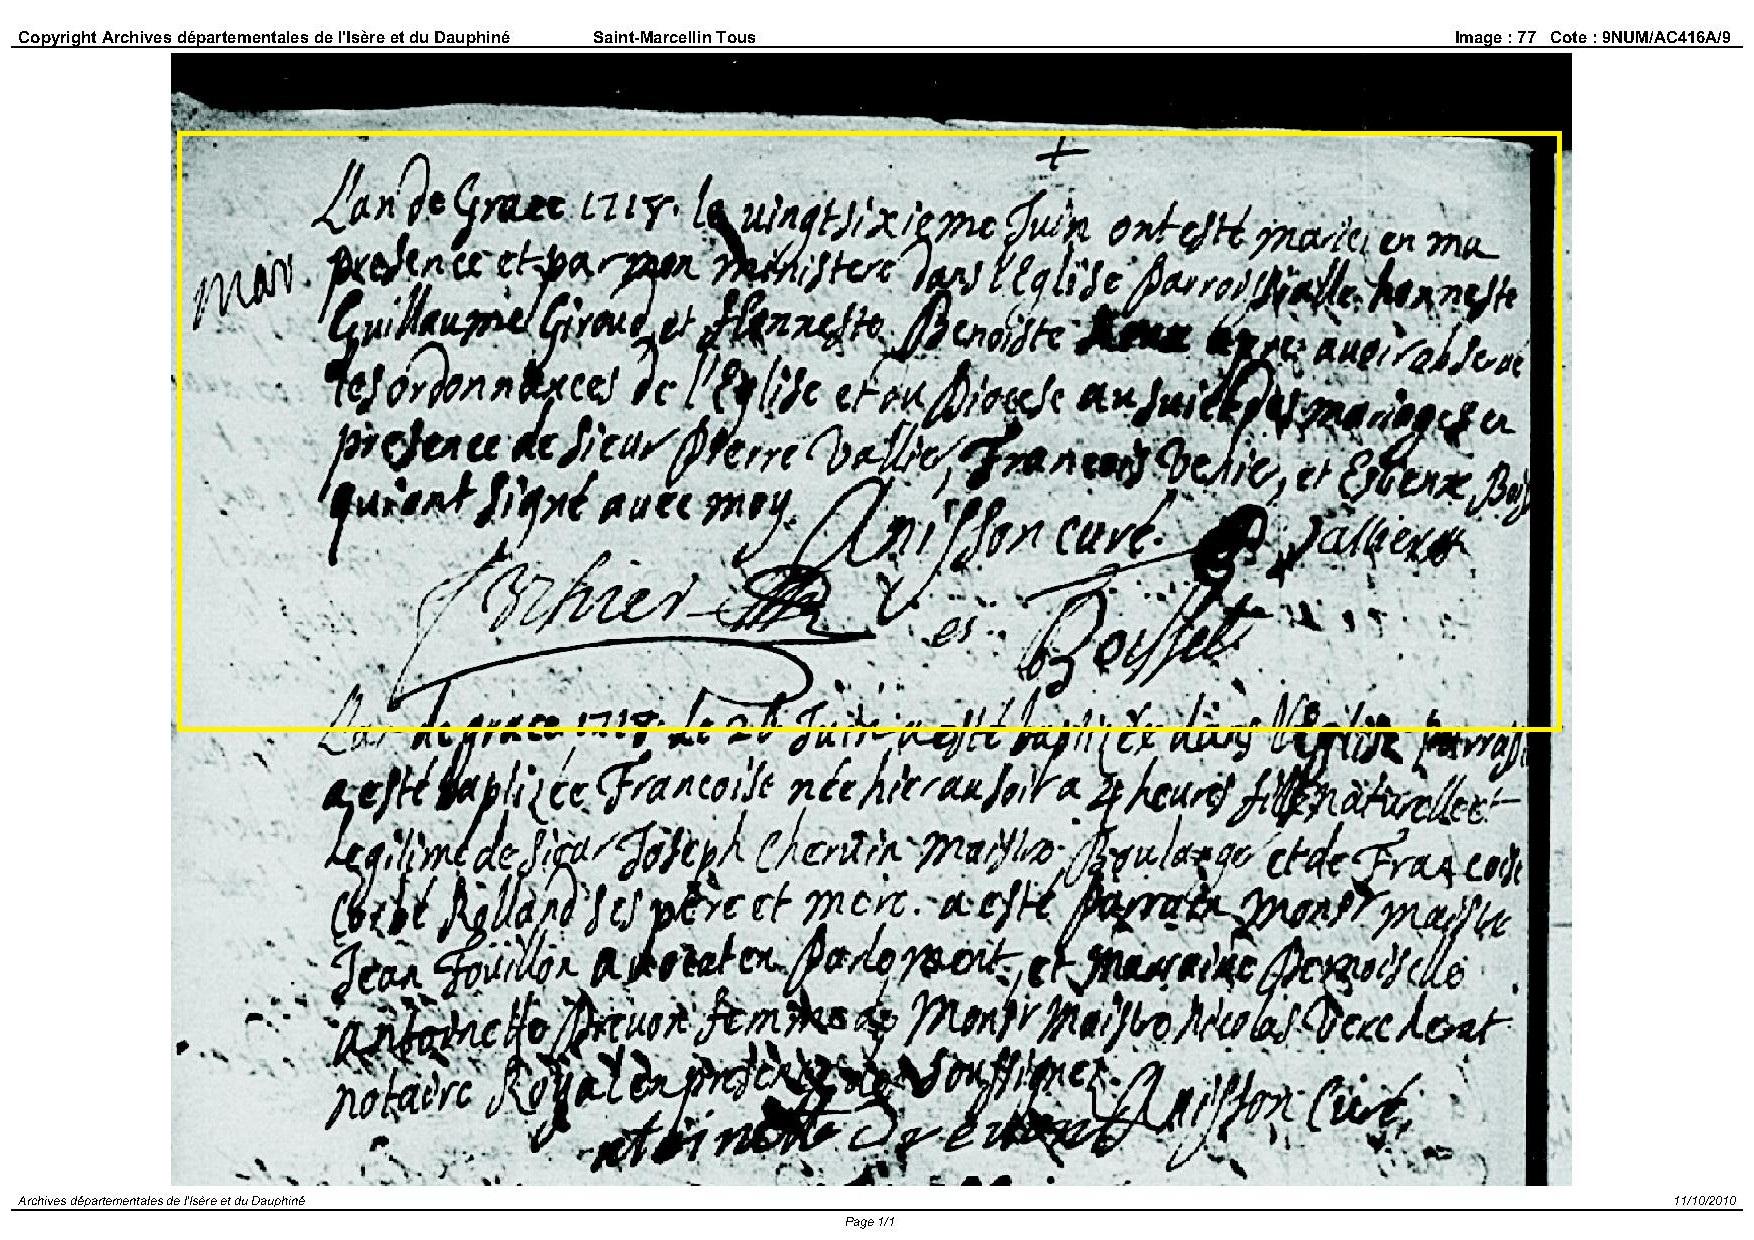 Copyright Archives départementales de l'Isère et du Dauphiné Saint-Marcellin Tous Image : 77 Cote : 9NUM/AC416A/9
L'an de Grace 1718. le vingtsixieme Juin ont esté mariez en ma
mari presence et par mon ministere dans l'Eglise parroissialle honneste
Guillaume Giroud et Honneste Benoiste apres avoir observé
les ordonnances de l'Eglise et du Diocese au suiet des mariages en
presence de sieur pierre vallier, François et Estienne
qui ont signé avec moy. Anisson curé. Vallier
Boisset
L'an de grace 1718. le 26 Juin a esté baptizée dans l'Eglise
a esté baptizée Françoise née hier au soir a 4 heures fille naturelle et
Legitime de sieur Joseph maistre Boulanger et de Françoise
Rolland ses père et mere. a esté parrain monsr maistre
Jean Fouillon advocat en parlement, et marraine Demoiselle
antoinette prevon femme de Monsr Maistre Nicolas
notaire Royal en presence des soussignez. Anisson Curé,
Archives départementales de l'Isère et du Dauphiné 11/10/2010
Page 1/1